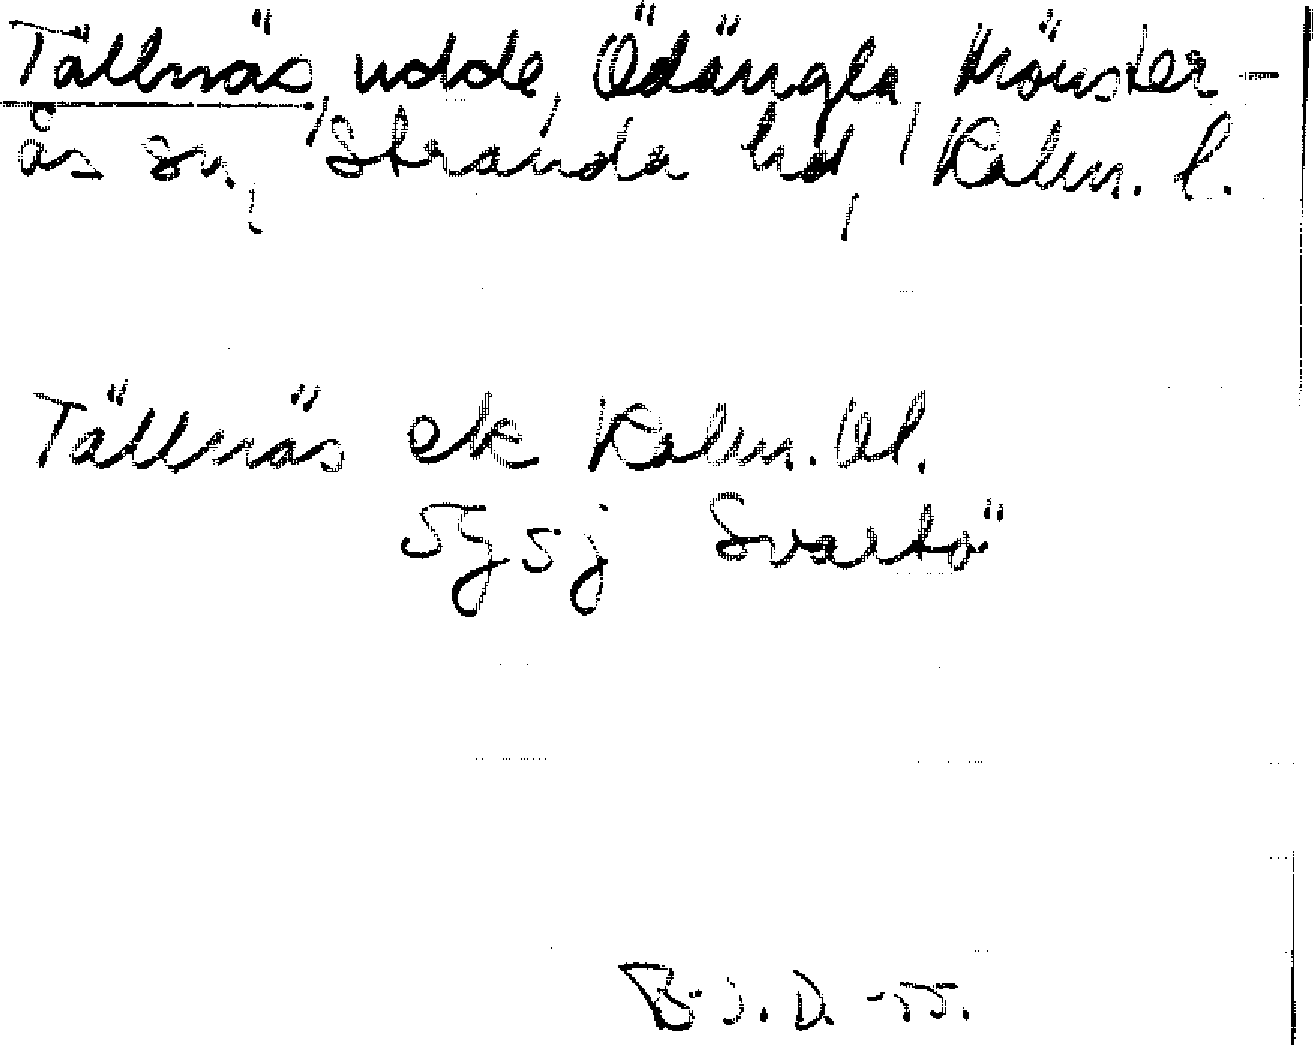 Tällnäs, udde, Ödängla, Mönster-
ås sn, Stranda hd, Kalm. l.
Tällnäs ek Kalm. bl.
5g5j Svartö
B.J.D. -55.